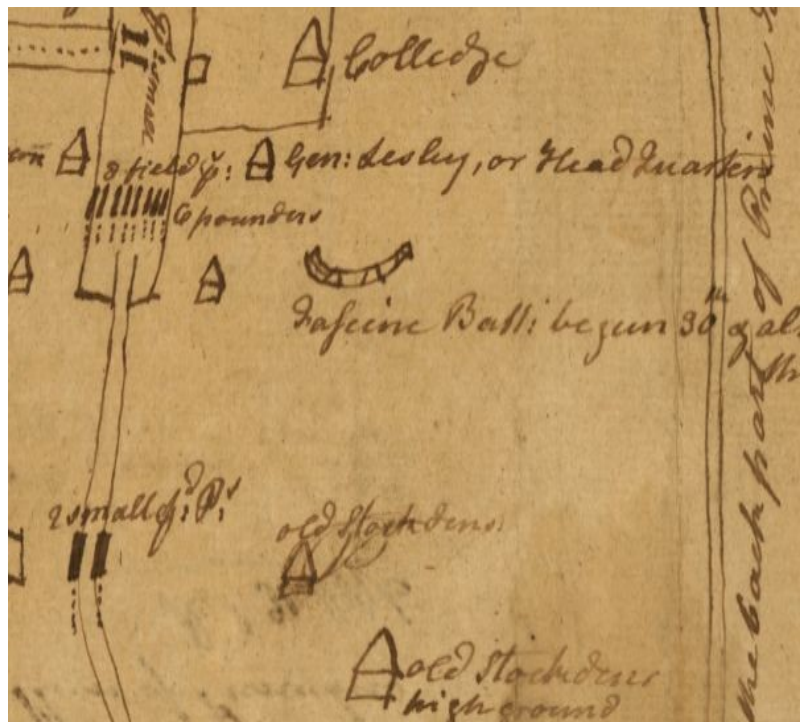 Colledge
8 field p: Gen: Lesley, or Head Quarters
6 pounders
Fascine Batt: begun 30th
2 small f:d P:s
old Stockdens
old Stockdens
high ground
the back part of Prince